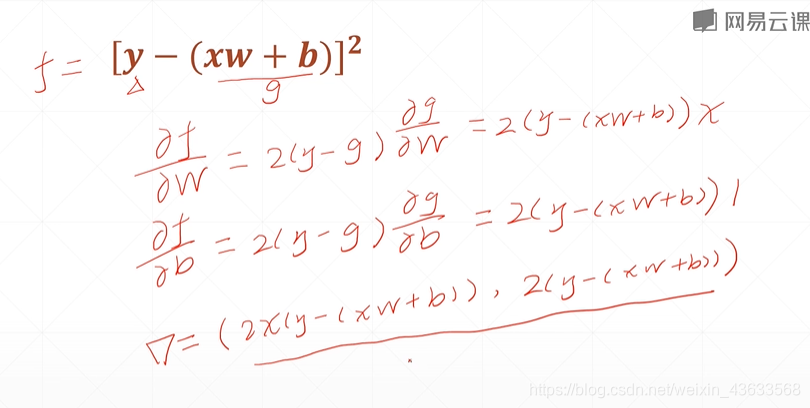 网易云课
f = [y − (xw + b)]²
g
∂f/∂w = 2(y-g) ∂g/∂w = 2(y-(xw+b))x
∂f/∂b = 2(y-g) ∂g/∂b = 2(y-(xw+b))1
∇=(2x(y-(xw+b)), 2(y-(xw+b)))
https://blog.csdn.net/weixin_43633568